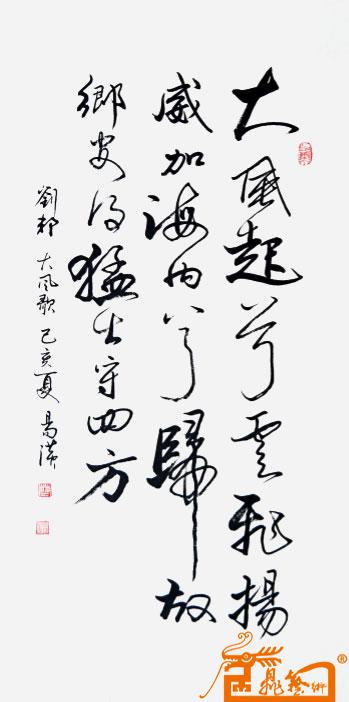 大風起兮雲飛揚
威加海内兮歸故
鄉安得猛士守四方
劉邦 大风歌 己亥夏 易漢
鼎藝術